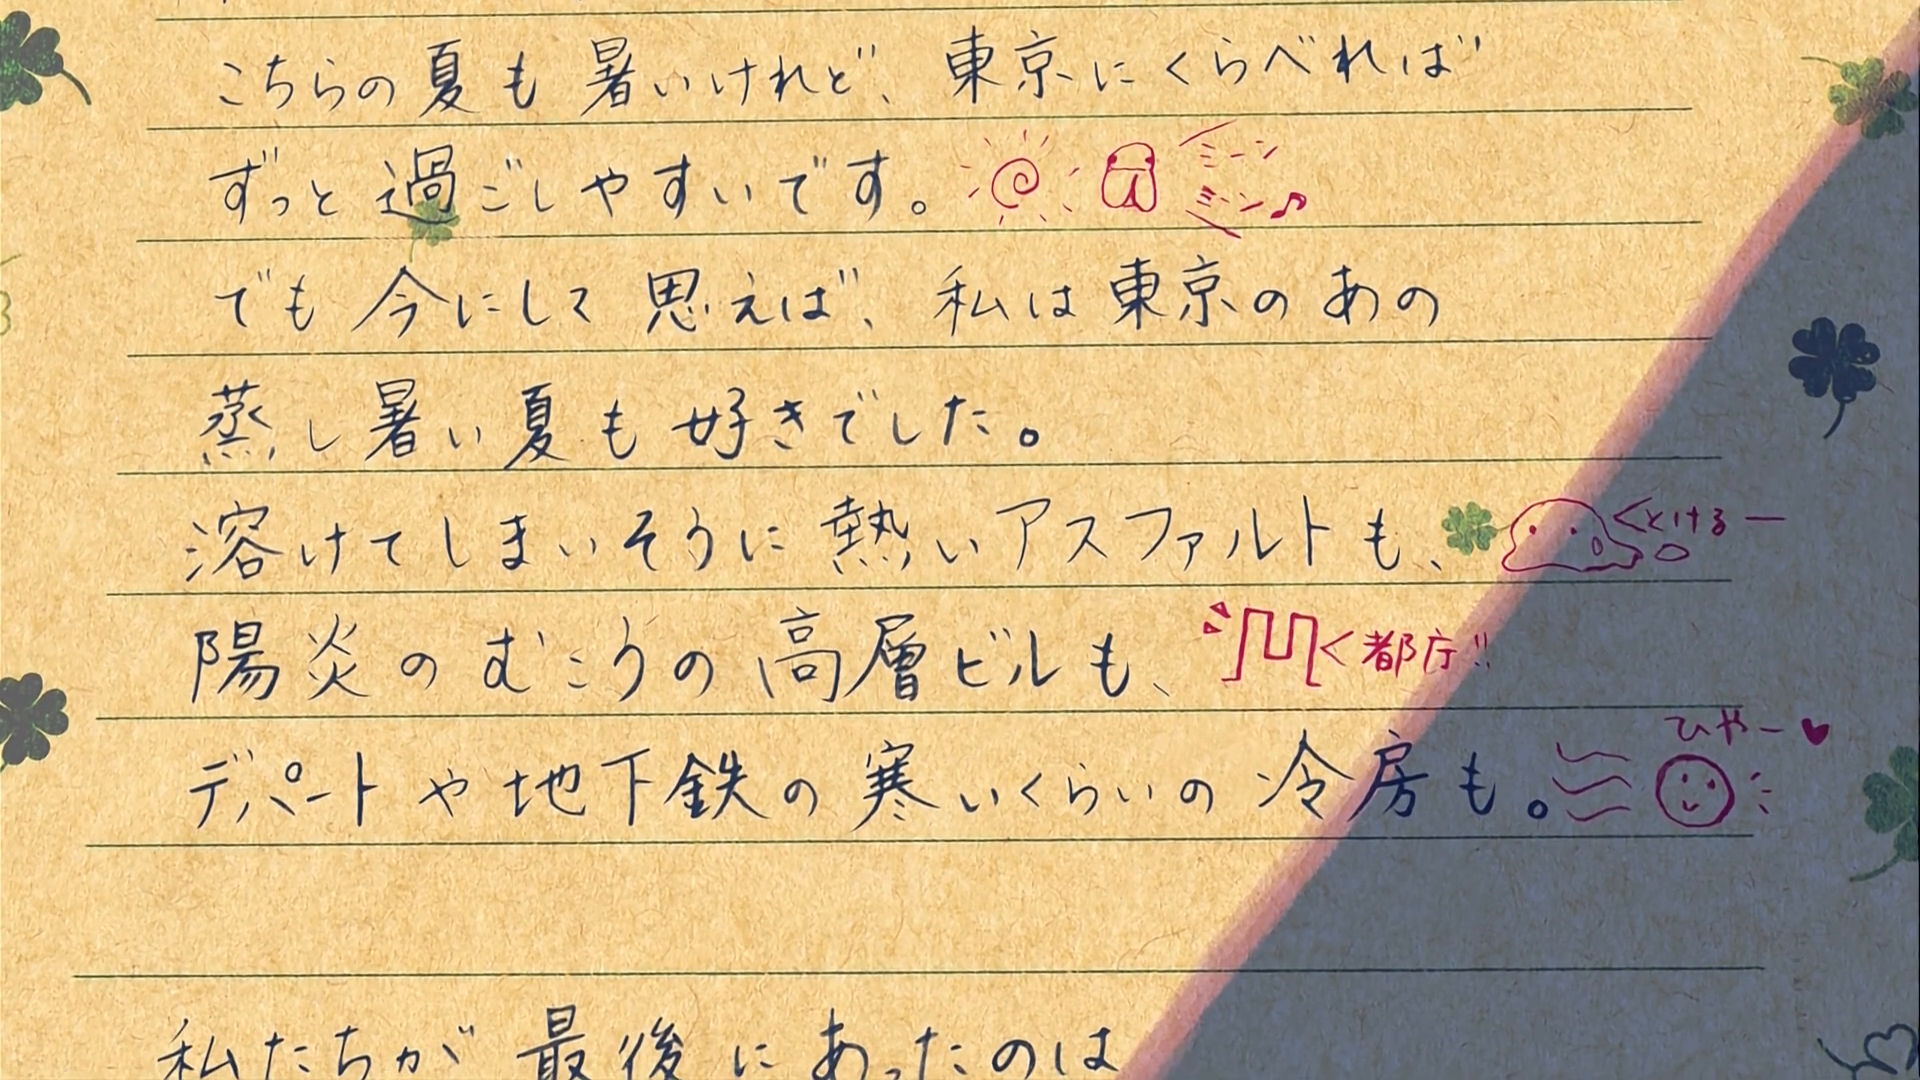 こちらの夏も暑いけれど、東京にくらべれば
ずっと過ごしやすいです。 ミーン
ミーン♪
でも今にして思えば、私は東京のあの
蒸し暑い夏も好きでした。
溶けてしまいそうに熱いアスファルトも、 <とけるー
陽炎のむこうの高層ビルも、 <都庁!!
ひやー♥
デパートや地下鉄の寒いくらいの冷房も。
私たちが最後にあったのは